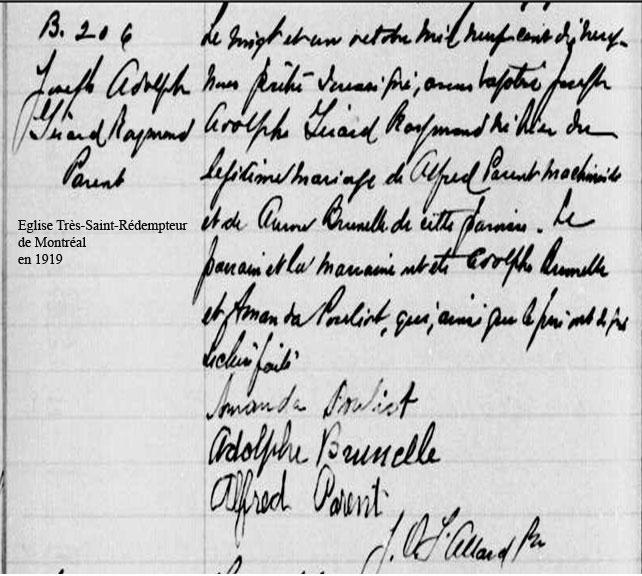 B. 206
Joseph Adolph
Gérard Raymond
Parent
Eglise Très-Saint-Rédempteur
de Montréal
en 1919
Le vingt et un octobre mil neuf cent dix neuf
nous prêtre soussigné, avons baptisé Joseph
Adolphe Gérard Raymond né hier du
légitime mariage de Alfred Parent machiniste
et de Aurore Brunelle de cette paroisse. Le
parrain et la marraine ont été Adolphe Brunelle
et Amanda Pouliot, qui, ainsi que le père ont signé
Lecture faite
Amanda Pouliot
Adolphe Brunelle
Alfred Parent
J. O. L'Allard Ptr